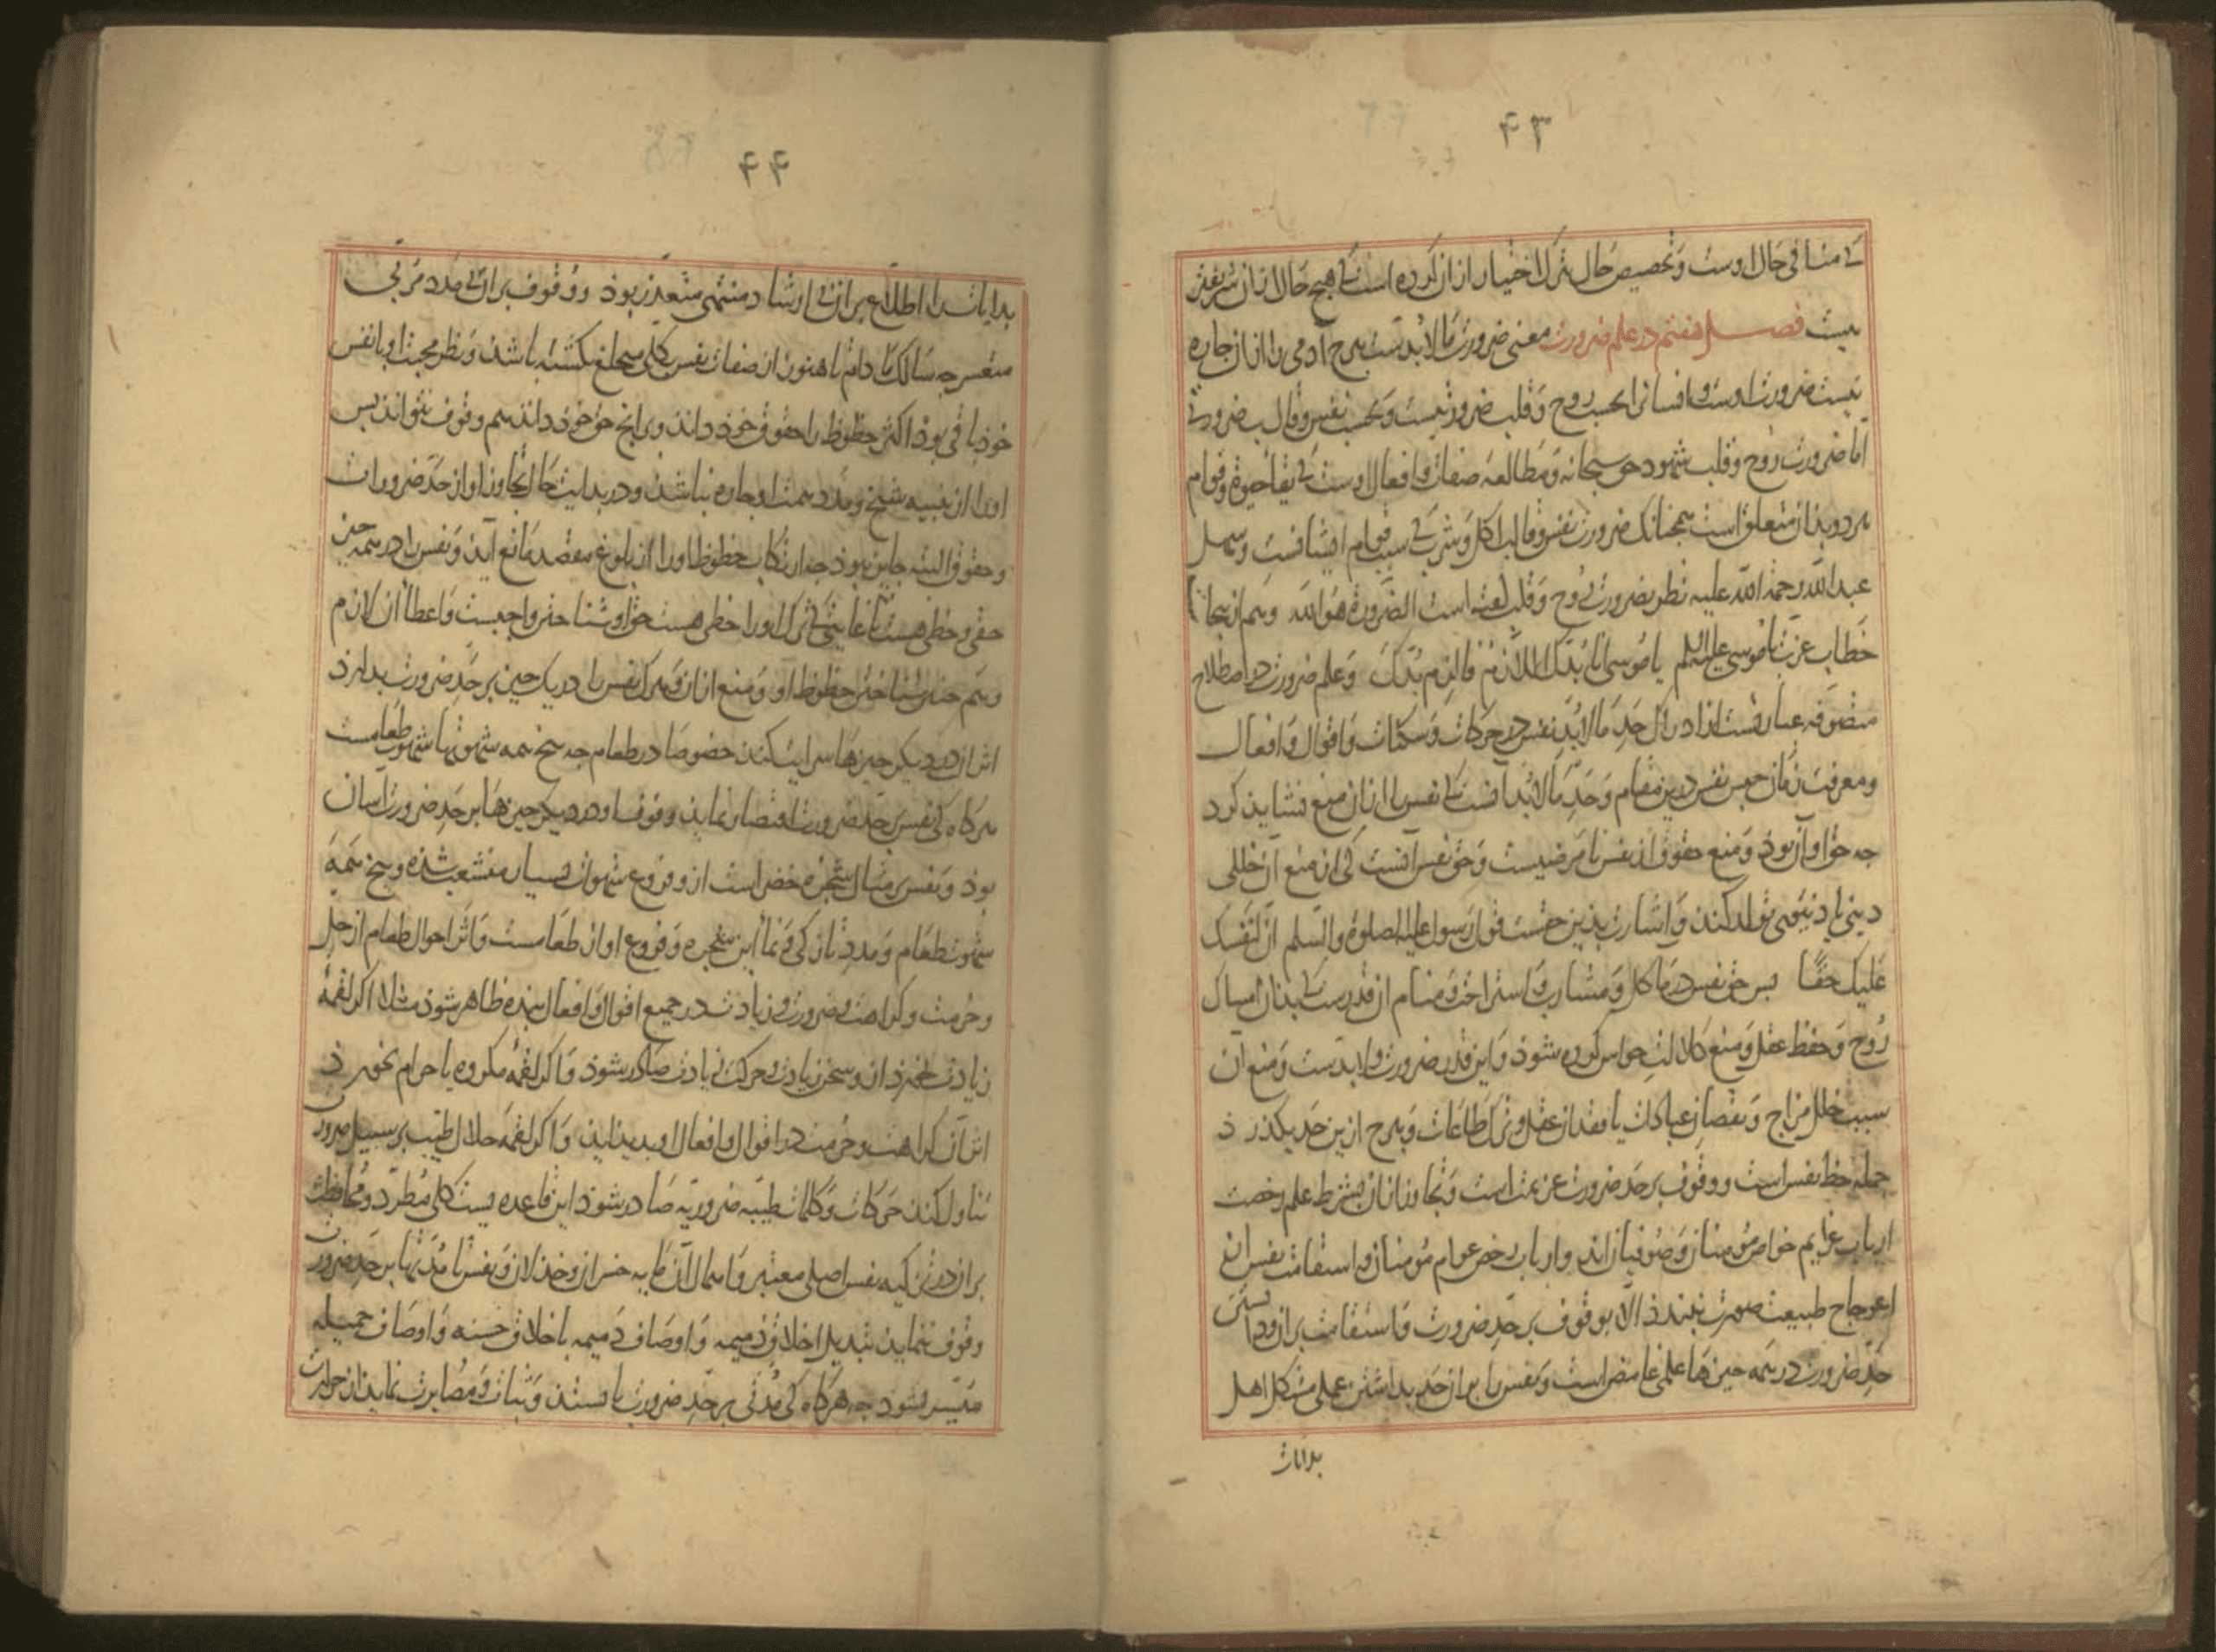 ۴۳
کی منافی حال اوست و تخصیص حال بترک اختیار از آن کرده است کی هیچ حال از آن شریفتر
نیست فصل هفتم در علم ضرورت معنی ضرورت مالابدست هرچ آدمی را از آن چاره
نیست ضرورت اوست و انسانرا بحسب روح و قلب ضرورتیست و بحسب نفس و قالب ضرورتی
اما ضرورت روح و قلب شهود حق سبحانه و مطالعه صفات و افعال اوست کی بقا حیوة و قوام
هردو بدان متعلق است همچنانک ضرورت نفس و قالب اکل و شرب کی سبب قوام ایشانست و سهل
عبدالله رحمة الله علیه نظر بضرورت روح و قلب گفته است الضرورة هو الله وهم از ینجا
خطاب عزت با موسی علیه السلم یا موسی انا بدک اللازم فالزم بدک و علم ضرورت در اصطلاح
متصوفه عبارتست از ادراک حد مالابد نفس در حرکات و سکنات و اقوال و افعال
و معرفت زمان حبس نفس درین مقام و حد مالابد آنست کی نفس را از آن منع نشاید کرد
چه حق او آن بود و منع حقوق از نفس نامرضیست و حق نفس آنست کی از منع آن خللی
دینی یا دنیوی تولد کند و اشارت بدین حقست قول رسول علیه الصلوة و السلم ان لنفسک
علیک حقا پس حق نفس در مآکل و مشارب و استراحت و منام آن قدرست کی بدان امساک
روح و حفظ عقل و منع کلالت حواس کرده شود و این قدر ضرورت و لابدست و منع آن
سبب خلل مزاج و نقصان عبادات یا فقدان عقل و ترک طاعات و هرچ ازین حد بگذرد
جمله حظ نفس است و وقوف بر حد ضرورت عزیمت است و تجاوز از آن بشرط علم رخصت
ارباب عزایم خواص مؤمنان و صوفیان اند و ارباب رخص عوام مؤمنان و استقامت نفس از
اعوجاج طبیعت صورت نبندد الا بوقوف بر حد ضرورت و استقامت بر آن و دانستن
حد ضرورت در همه چیزها علمی غامض است و نفس را بر آن حد بداشتن عملی مشکل اهل
بدایات
۴۴
بدایات را اطلاع بر آن بی ارشاد منتهی متعذر بود و وقوف بر آن بی مدد مربی
متعسر چه سالک مادام تا هنوز از صفات نفس کلی منخلع نگشته باشد و نظر محبت او با نفس
خود باقی بود اکثر حظوظ را حقوق خود داند و بر آنچ حق خود داند هم وقوف نتواند پس
اورا از تنبیه شیخ و مدد همت او چاره نباشد و در بدایت حال تجاوز او از حد ضرورات
و حقوق البته جایز نبود چه ارتکاب حظوظ اورا از بلوغ مقصد مانع آید و نفس را در همه چیز
حقی و حظی هست تا غایتی کی ترک اورا حظی هست حق او شناختن واجبست و اعطا آن لازم
وهم چنین شناختن حظوظ او و منع از آن و هرک نفس را در یک چیز بر حد ضرورت بدارد
اثر آن در دیگر چیزها سرایت کند خصوصا در طعام چه بیخ همه شهوتها شهوت طعامست
هرگاه کی نفس بر حد ضرورت اقتصار نماید وقوف او در دیگر چیزها بر حد ضرورت آسان
بود و نفس بر مثال شجره خضراست ازو فروع شهوات بسیار منشعب شده و بیخ همه
شهوت طعام و مدد تازگی و نمأ این شجره و فروع او از طعامست و اثر احوال طعام از حل
و حرمت و کراهت و ضرورت و زیادت در جمیع اقوال و افعال بنده ظاهر شود مثلا اگر لقمه
زیادت خورد ازو سخن زیادت و حرکت زیادت صادر شود و اگر لقمه مکروه یا حرام بخورد
اثر آن کراهت و حرمت در اقوال و افعال او پدید آید و اگر لقمه حلال طیب بر سبیل ضرورت
تناول کند حرکات و کلمات طیبه ضروریه صادر شود این قاعده ایست کلی مطرد و محافظت
بر آن در تزکیه نفس اصلی معتبر و اهمال آن مایه خسران و خذلان و نفس تا مدتها بر حد ضرورت
وقوف ننماید تبدیل اخلاق ذمیمه و اوصاف ذمیمه باخلاق حسنه و اوصاف جمیله
میسر نشود چه هرگاه کی مدتی بر حد ضرورت بایستد و ثبات و مصابرت نماید از حرارت